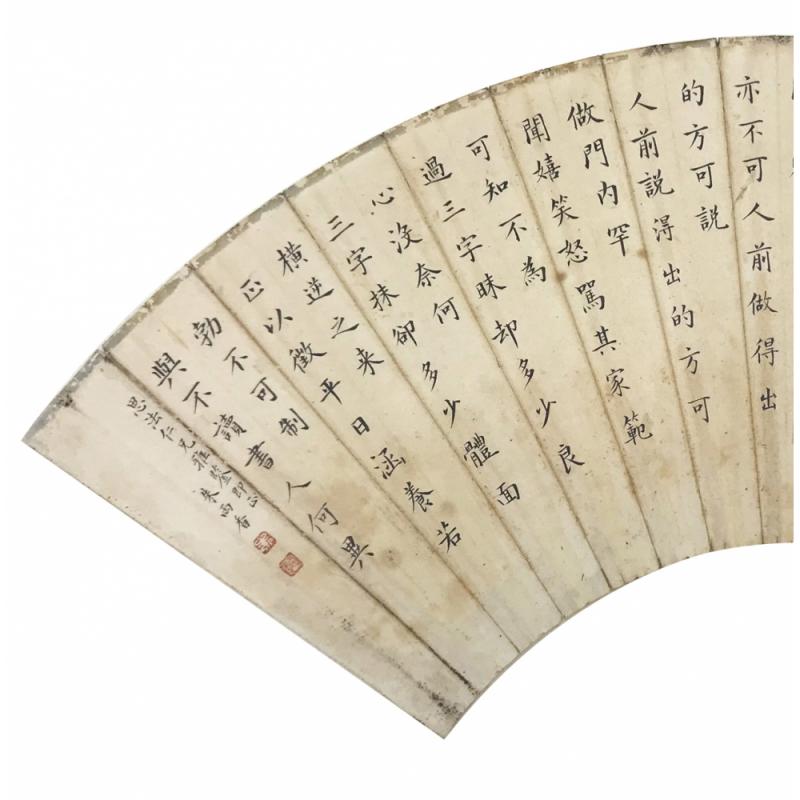 亦不可人前做得出
的方可説
人前説得出的方可
做門内罕
聞嬉笑怒駡其家範
可知不為
過三字昧却多少良
心沒奈何
三字抹卻多少體面
橫逆之来
正以徵平日涵養若
勃不可制
與不讀書人何異
思法仁兄雅鑒即正
朱雨香